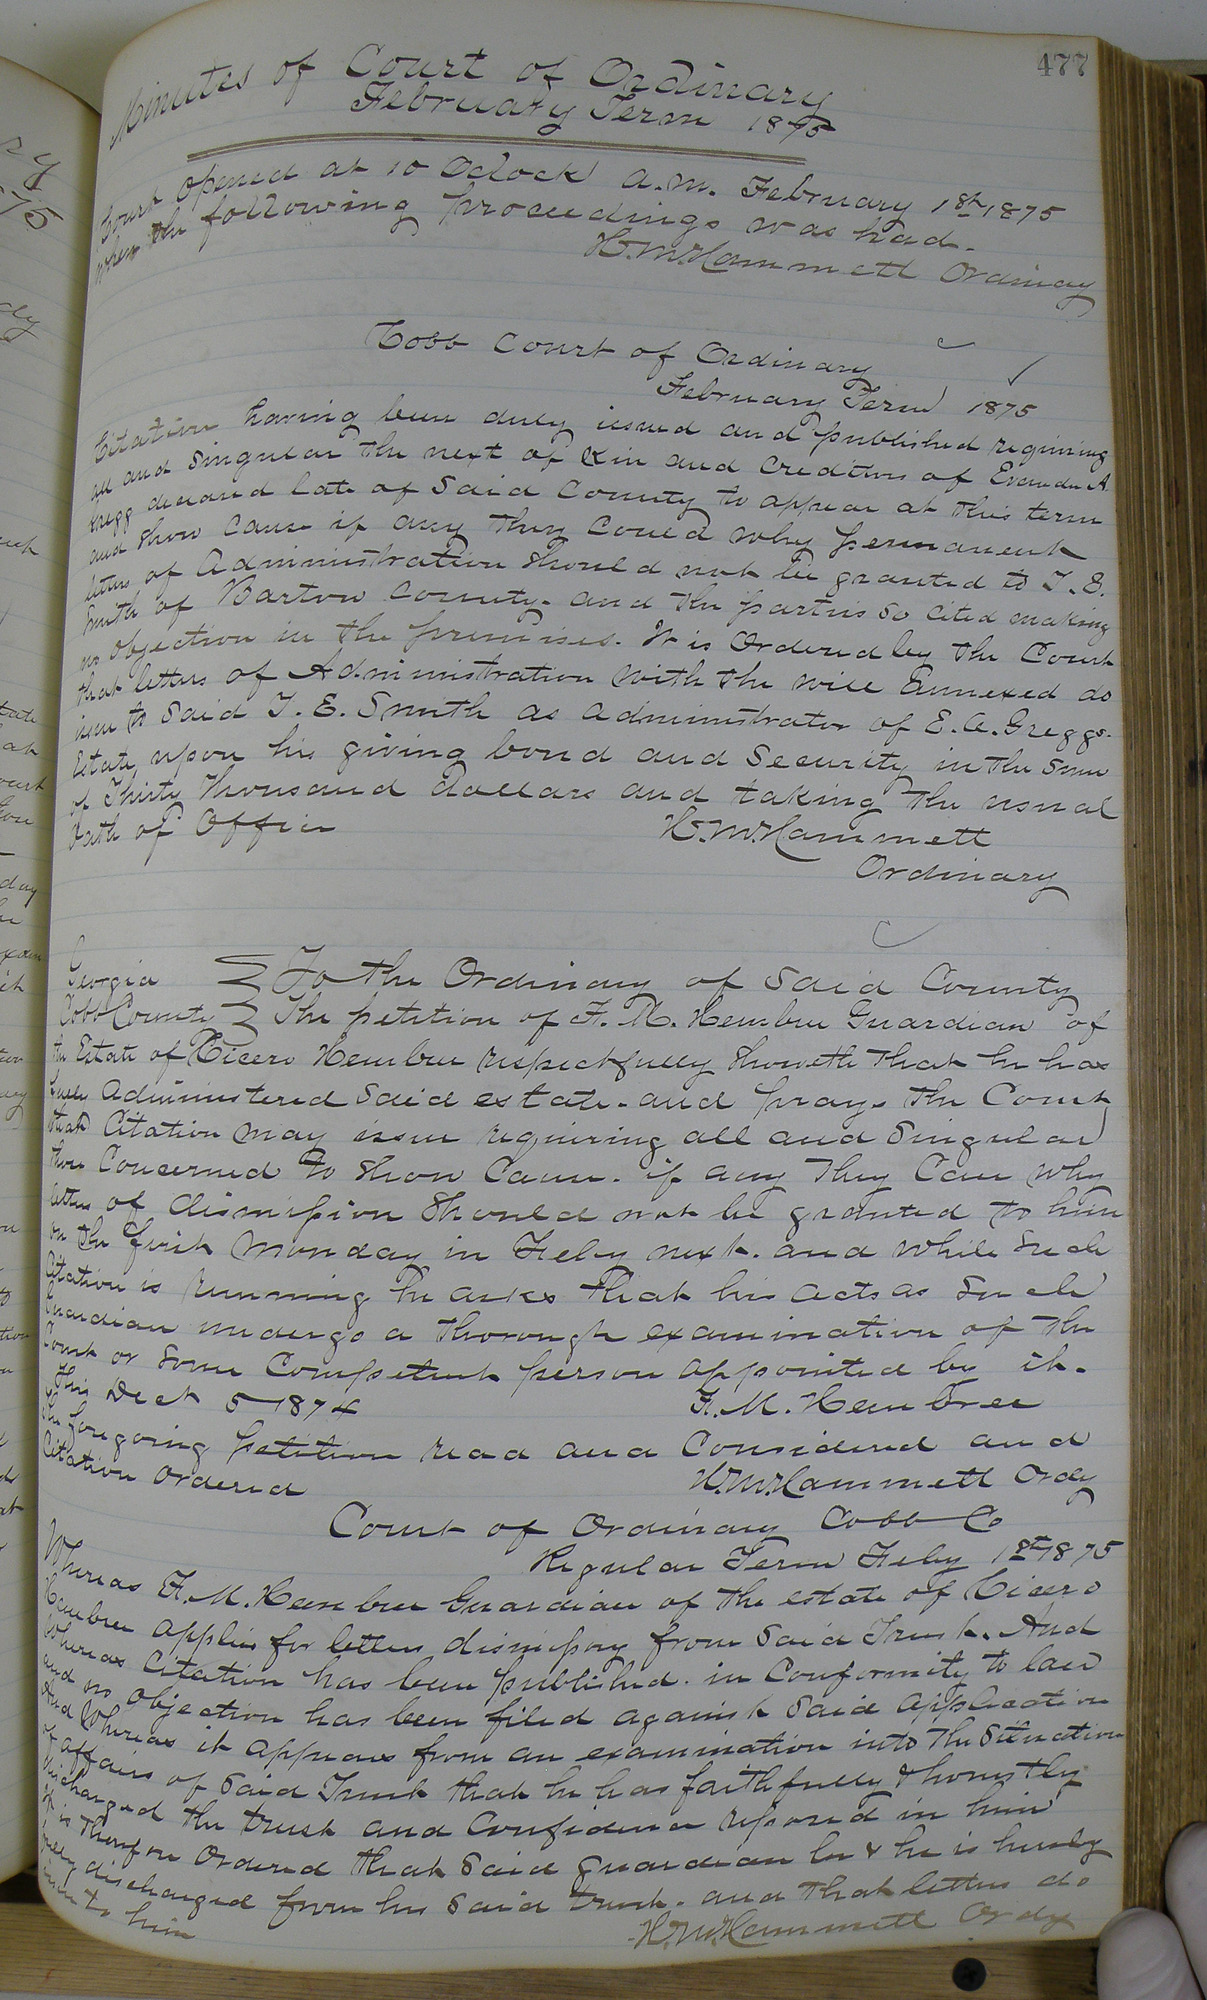 477
Minutes of Court of Ordinary
February Term 1875
Court Opened at 10 Oclock a.m. February 1st 1875
when the following proceedings was had.
H. M. Hammett Ordinary
Cobb Court of Ordinary
February Term 1875
Citation having been duly issued and published requiring
all and Singular the next of Kin and Creditors of A.
Gregg deceased late of Said County to appear at this term
and Show Cause if any they Could why permanent
letters of Administration Should not be granted to T. E.
Smith of Bartow County. and the parties So cited making
no Objection in the premises. It is Ordered by the Court
that letters of Administration With the will Annexed do
issue to Said T. E. Smith as administrator of E. A. Greggs.
Estate, upon his giving bond and Security in the Sum
of Thirty Thousand dollars and taking the usual
Oath of Office
H. M. Hammett
Ordinary
Georgia To the Ordinary of Said County
Cobb County The petition of F. M. Hembree Guardian of
the Estate of Cicero Hembree respectfully Showeth that he has
fully Administered Said estate. and prays the Court
that Citation may issue requiring all and Singular
those Concerned to Show Cause. if any They Can Why
letters of dismission Should not be granted to him
on the first Monday in Feby next. and while Such
Citation is running he asks that his acts as Such
Guardian undergo a thorough examination of the
Court or Some Competent person appointed by it.
This Dect 5 1874
F. M. Hembree
The foregoing petition read and Considered and
Citation Ordered
H. M. Hammett Ordy
Court of Ordinary Cobb Co
Regular Term Feby 1st 1875
Whereas F. M. Hembree Guardian of the estate of Cicero
Hembree applies for letters dismissory from Said Trust. And
Whereas Citation has been published. in Conformity to law
and no Objection has been filed against Said application
And Whereas it appears from an examination into the Situation
of affairs of Said Trust that he has faithfully & honestly
discharged the trust and Confidence reposed in him
It is Therefore Ordered that Said guardian be & he is hereby
fully discharged from his Said trust. and that letters do
issue to him
H. M. Hammett Ordy